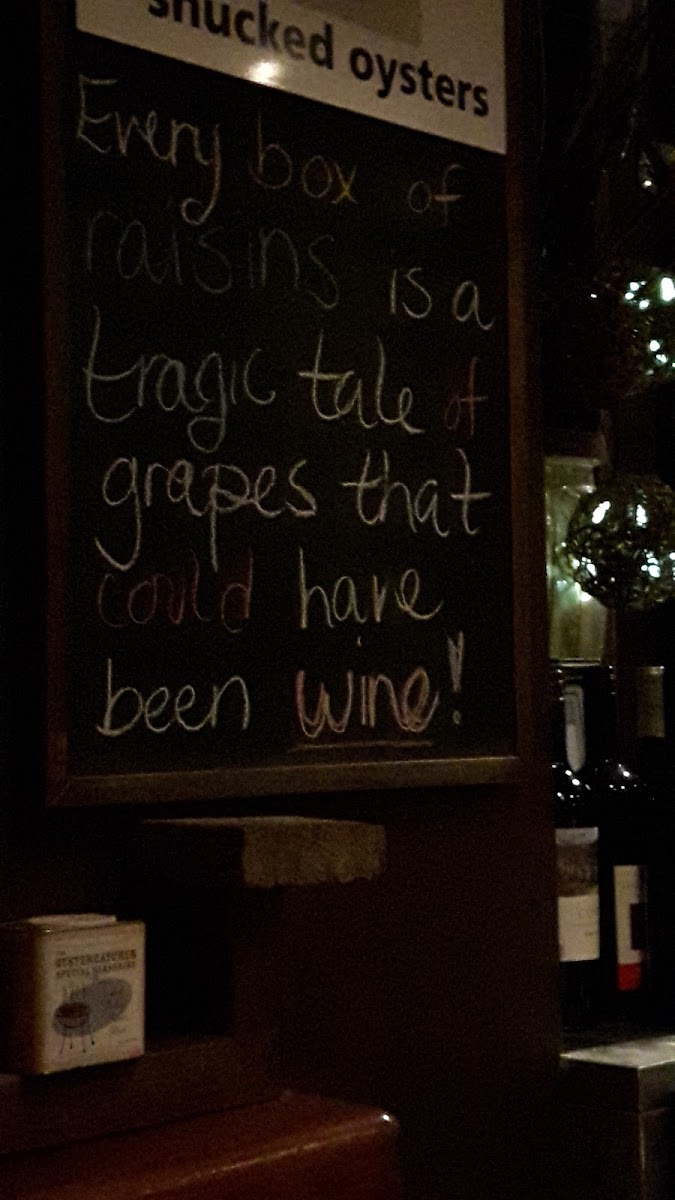 shucked oysters
Every box of
raisins is a
tragic tale of
grapes that
could have
been wine!
THE
OYSTERCATCHER